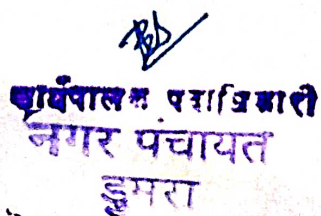 कार्यपालक पदाधिकारी
नगर पंचायत
डुमरा